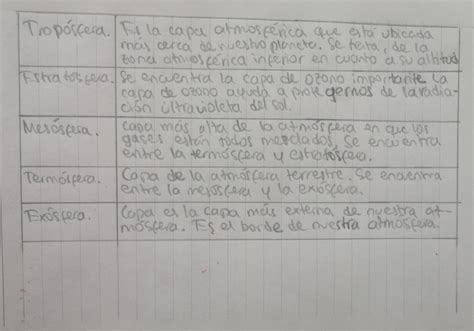 Tropósfera. Es la capa atmosférica que está ubicada
más cerca de nuestro planeta. Se trata, de la
zona atmosférica inferior en cuanto a su altitud
Estratosfera. Se encuentra la capa de ozono importante La
capa de ozono ayuda a prote gernos de la radia-
ción Ultravioleta del sol.
Mesósfera. Capa más alta de la atmósfera en que los
gases están todos mezclados, Se encuentra
entre la termósfera y estratósfera.
Termósfera. Capa de la atmósfera terrestre. Se encuentra
entre la mesósfera y la exósfera.
Exósfera. Capa es la capa más externa de nuestra at-
mósfera. Es el borde de nuestra atmósfera.